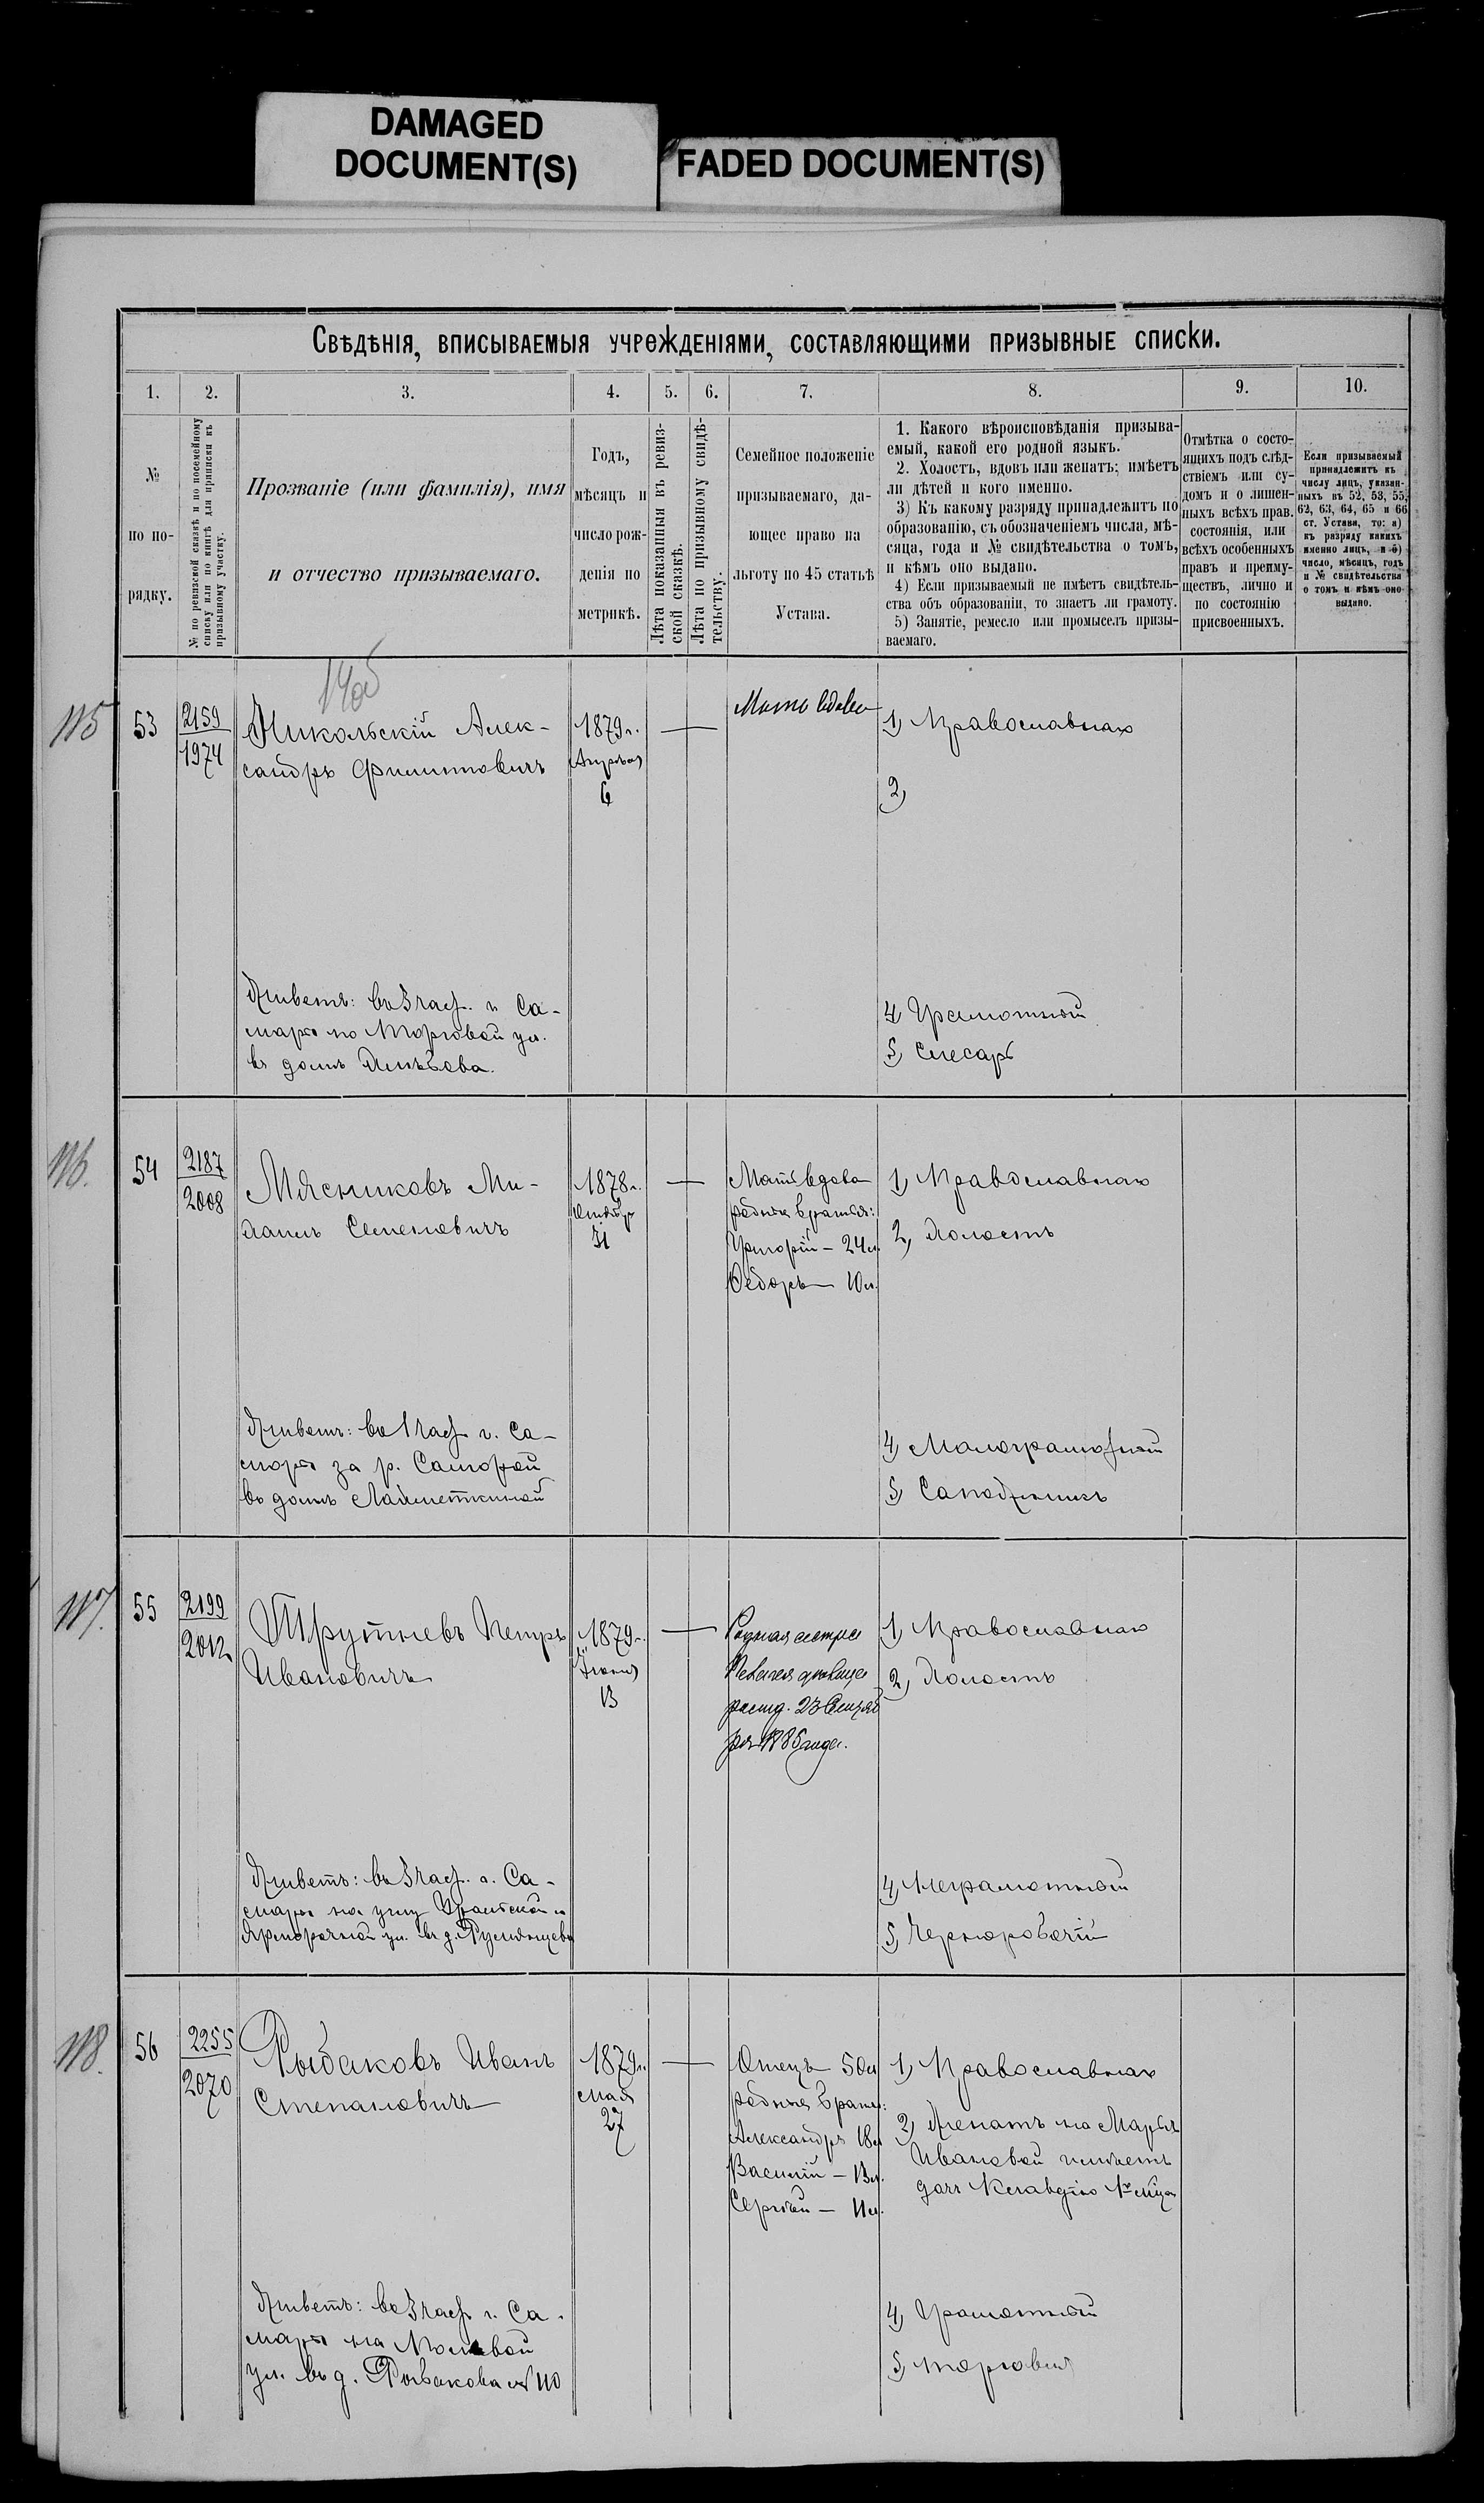 DAMAGED
DOCUMENT(S)
FADED DOCUMENT(S)
Свѣдѣнія, вписываемыя учрежденіями, составляющими призывные списки.
1.
2.
3.
4.
5.
6.
7.
8.
9.
10.
№
по по-
рядку.
№ по ревизской сказкѣ и по посемейному
списку или по книгѣ для приписки къ
призывному участку.
Прозваніе (или фамилія), имя
и отчество призываемаго.
Годъ,
мѣсяцъ и
число рож-
денія по
метрикѣ.
Лѣта показанныя въ ревиз-
ской сказкѣ.
Лѣта по призывному свидѣ-
тельству.
Семейное положеніе
призываемаго, да-
ющее право на
льготу по 45 статьѣ
Устава.
1. Какого вѣроисповѣданія призыва-
емый, какой его родной языкъ.
2. Холостъ, вдовъ или женатъ; имѣетъ
ли дѣтей и кого именно.
3) Къ какому разряду принадлежитъ по
образованію, съ обозначеніемъ числа, мѣ-
сяца, года и № свидѣтельства о томъ,
и кѣмъ оно выдано.
4) Если призываемый не имѣетъ свидѣтель-
ства объ образованіи, то знаетъ ли грамоту.
5) Занятіе, ремесло или промыселъ призы-
ваемаго.
Отмѣтка о состо-
ящихъ подъ слѣд-
ствіемъ или су-
домъ и о лишен-
ныхъ всѣхъ прав.
состоянія, или
всѣхъ особенныхъ
правъ и преиму-
ществъ, лично и
по состоянію
присвоенныхъ.
Если призываемый
принадлежитъ къ
числу лицъ, указан-
ныхъ въ 52, 53, 55,
62, 63, 64, 65 и 66
ст. Устава, то: а)
къ разряду какихъ
именно лицъ, и б)
число, мѣсяцъ, годъ
и № свидѣтельства
о томъ и кѣмъ оно
выдано.
115
53
2159
1974
Никольскій Алек-
сандръ Филипповичъ
1879 г.
Апрѣля
6
Мать вдова
1) Православнаго
2)
Живетъ: въ 3 част. г. Са-
марѣ по Торговой ул.
въ домѣ
4) Грамотный
5) Слесарь
116.
54
2187
2008
Мясниковъ Ми-
хаилъ Семеновичъ
1878 г.
Мать вдова
родные братья:
Григорій — 24 л.
Федоръ — 10 л.
1) Православнаго
2) Холостъ
Живетъ: въ 1 част. г. Са-
марѣ за р. Самарой
въ домѣ
4) Малограмотный
5) Сапожникъ
117.
55
2199
2012
Трутневъ Петръ
Ивановичъ
1879 г.
Іюня
13
Родная сестра
дѣвица
рожд. 23 Сентяб
ря 1885 года.
1) Православнаго
2) Холостъ
Живетъ: въ 3 част. г. Са-
марѣ на углу и
Ярморочной ул. въ д. Румянцева
4) Неграмотный
5) Чернорабочій
118.
56
2255
2070
Рыбаковъ Иванъ
Степановичъ
1879 г.
Мая
27
Отецъ 50 л
родные братья:
Александръ 18 л
Василій — 13 л.
Сергѣй — 11 л.
1) Православнаго
2) Женатъ на Марьѣ
Ивановой имѣетъ
дочь Клавдію
Живетъ: въ 3 част. г. Са-
марѣ на Полевой
ул. въ д. Рыбакова № 110
4) Грамотный
5) Торговля